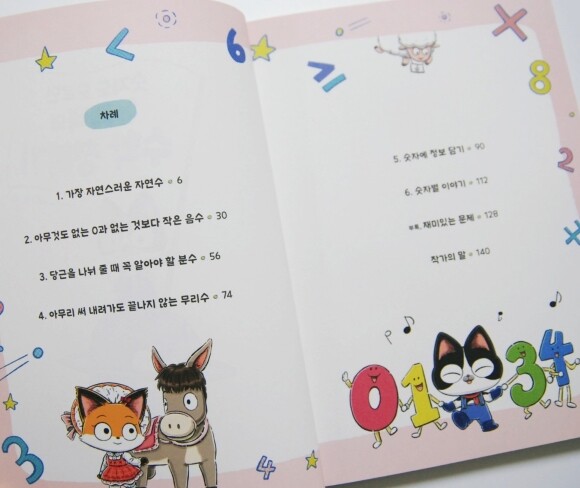 차례
1. 가장 자연스러운 자연수 6
2. 아무것도 없는 0과 없는 것보다 작은 음수 30
3. 당근을 나눠 줄 때 꼭 알아야 할 분수 56
4. 아무리 써 내려가도 끝나지 않는 무리수 74
5. 숫자에 정보 담기 90
6. 숫자별 이야기 112
부록. 재미있는 문제 128
작가의 말 140
< 6
× 8 2
3 4
0 1 3 4